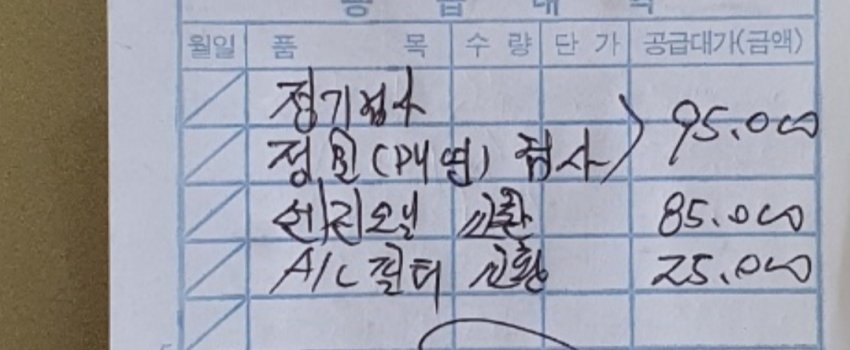 공 급 내 역
월일 품 목 수 량 단 가 공급대가(금액)
정기검사
정밀(매연) 검사 ) 95.000
엔진오일 교환 85.000
A/C 필터 교환 25.000